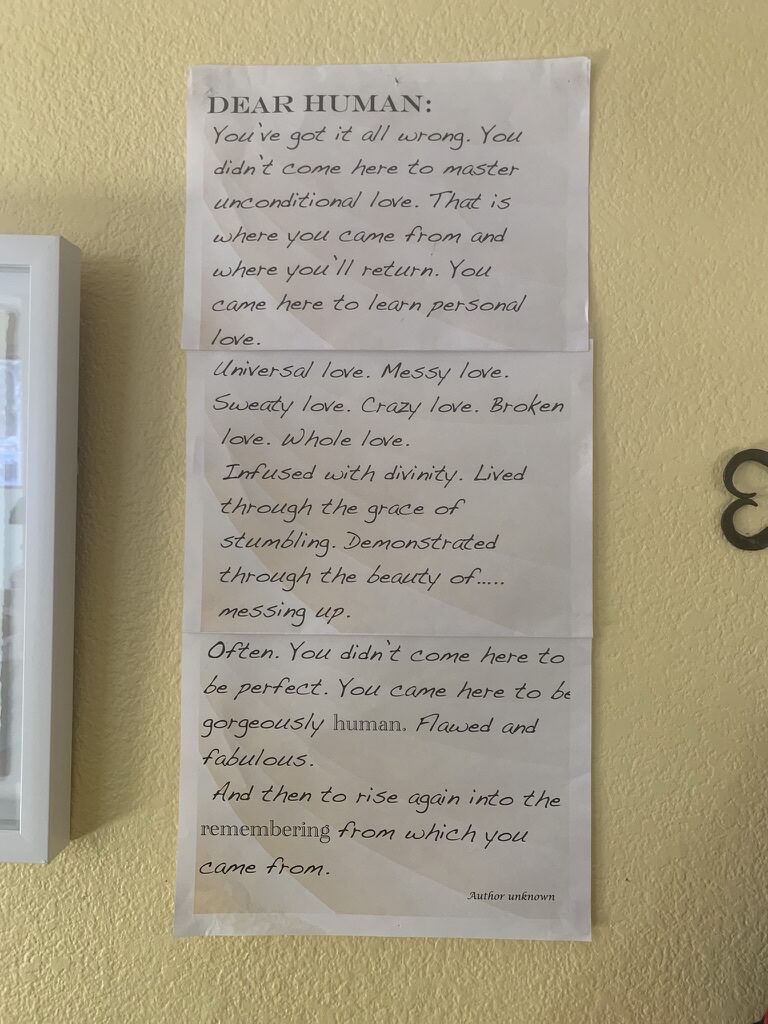 DEAR HUMAN:
You've got it all wrong. You
didn't come here to master
unconditional love. That is
where you came from and
where you'll return. You
came here to learn personal
love.
Universal love. Messy love.
Sweaty love. Crazy love. Broken
love. Whole love.
Infused with divinity. Lived
through the grace of
stumbling. Demonstrated
through the beauty of.....
messing up.
Often. You didn't come here to
be perfect. You came here to be
gorgeously human. Flawed and
fabulous.
And then to rise again into the
remembering from which you
came from.
Author unknown